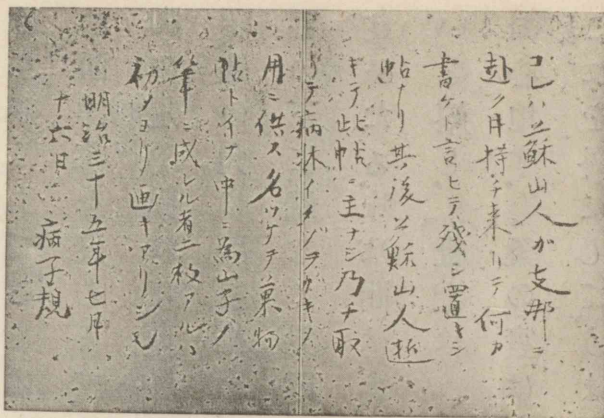 コレハ蘇山人ガ支那ニ
赴ク時持チ来リテ何カ
書ケト言ヒテ残シ置キシ
帖ナリ其後蘇山人逝
キテ此帖ニ主ナシ乃チ取
リテ病牀イタヅラガキノ
用ニ供ス名ツケテ菓物
帖トイフ中ニ為山子ノ
筆ニ成レル者二枚アルハ
初メヨリ画キアリシモ
明治三十五年七月
十六日 病子規